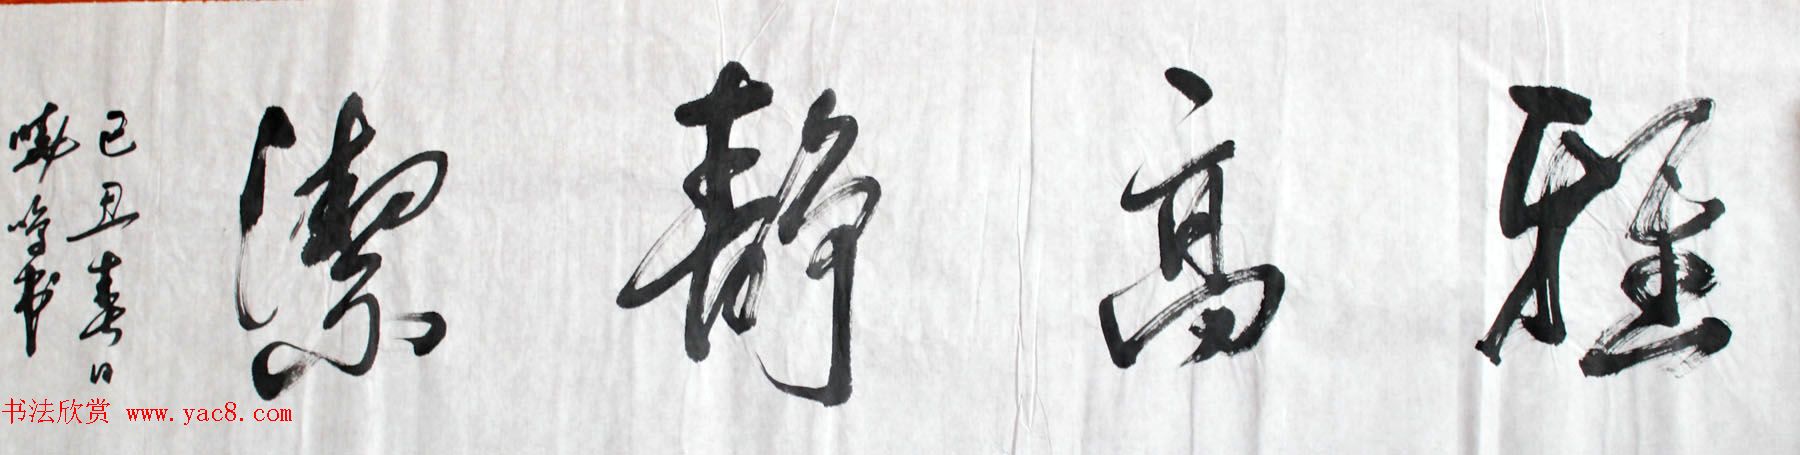 雅高静潔
己丑春日
晓鸣书
书法欣赏 www.yac8.com